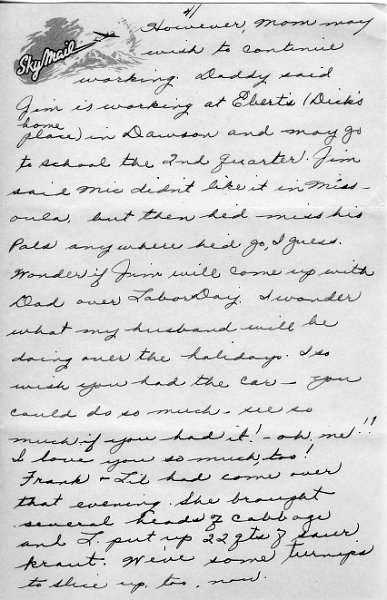 4/
Sky Mail
However, Mom may
wish to continue
working. Daddy said
Jim is working at Ebert's (Dick's
home
place) in Dawson and may go
to school the 2nd quarter. Jim
said Mic didn't like it in Miss-
oula, but then he'd miss his
Pals anywhere he'd go, I guess.
Wonder if Jim will come up with
Dad over Labor Day. I wonder
what my husband will be
doing over the holidays. I so
wish you had the car - you
could do so much - see so
much if you had it! - oh, me!!
I love you so much, too!
Frank + Lil had come over
that evening. She brought
several heads of cabbage
and I put up 22 qts of saur
kraut. We've some turnips
to slice up, too, now.